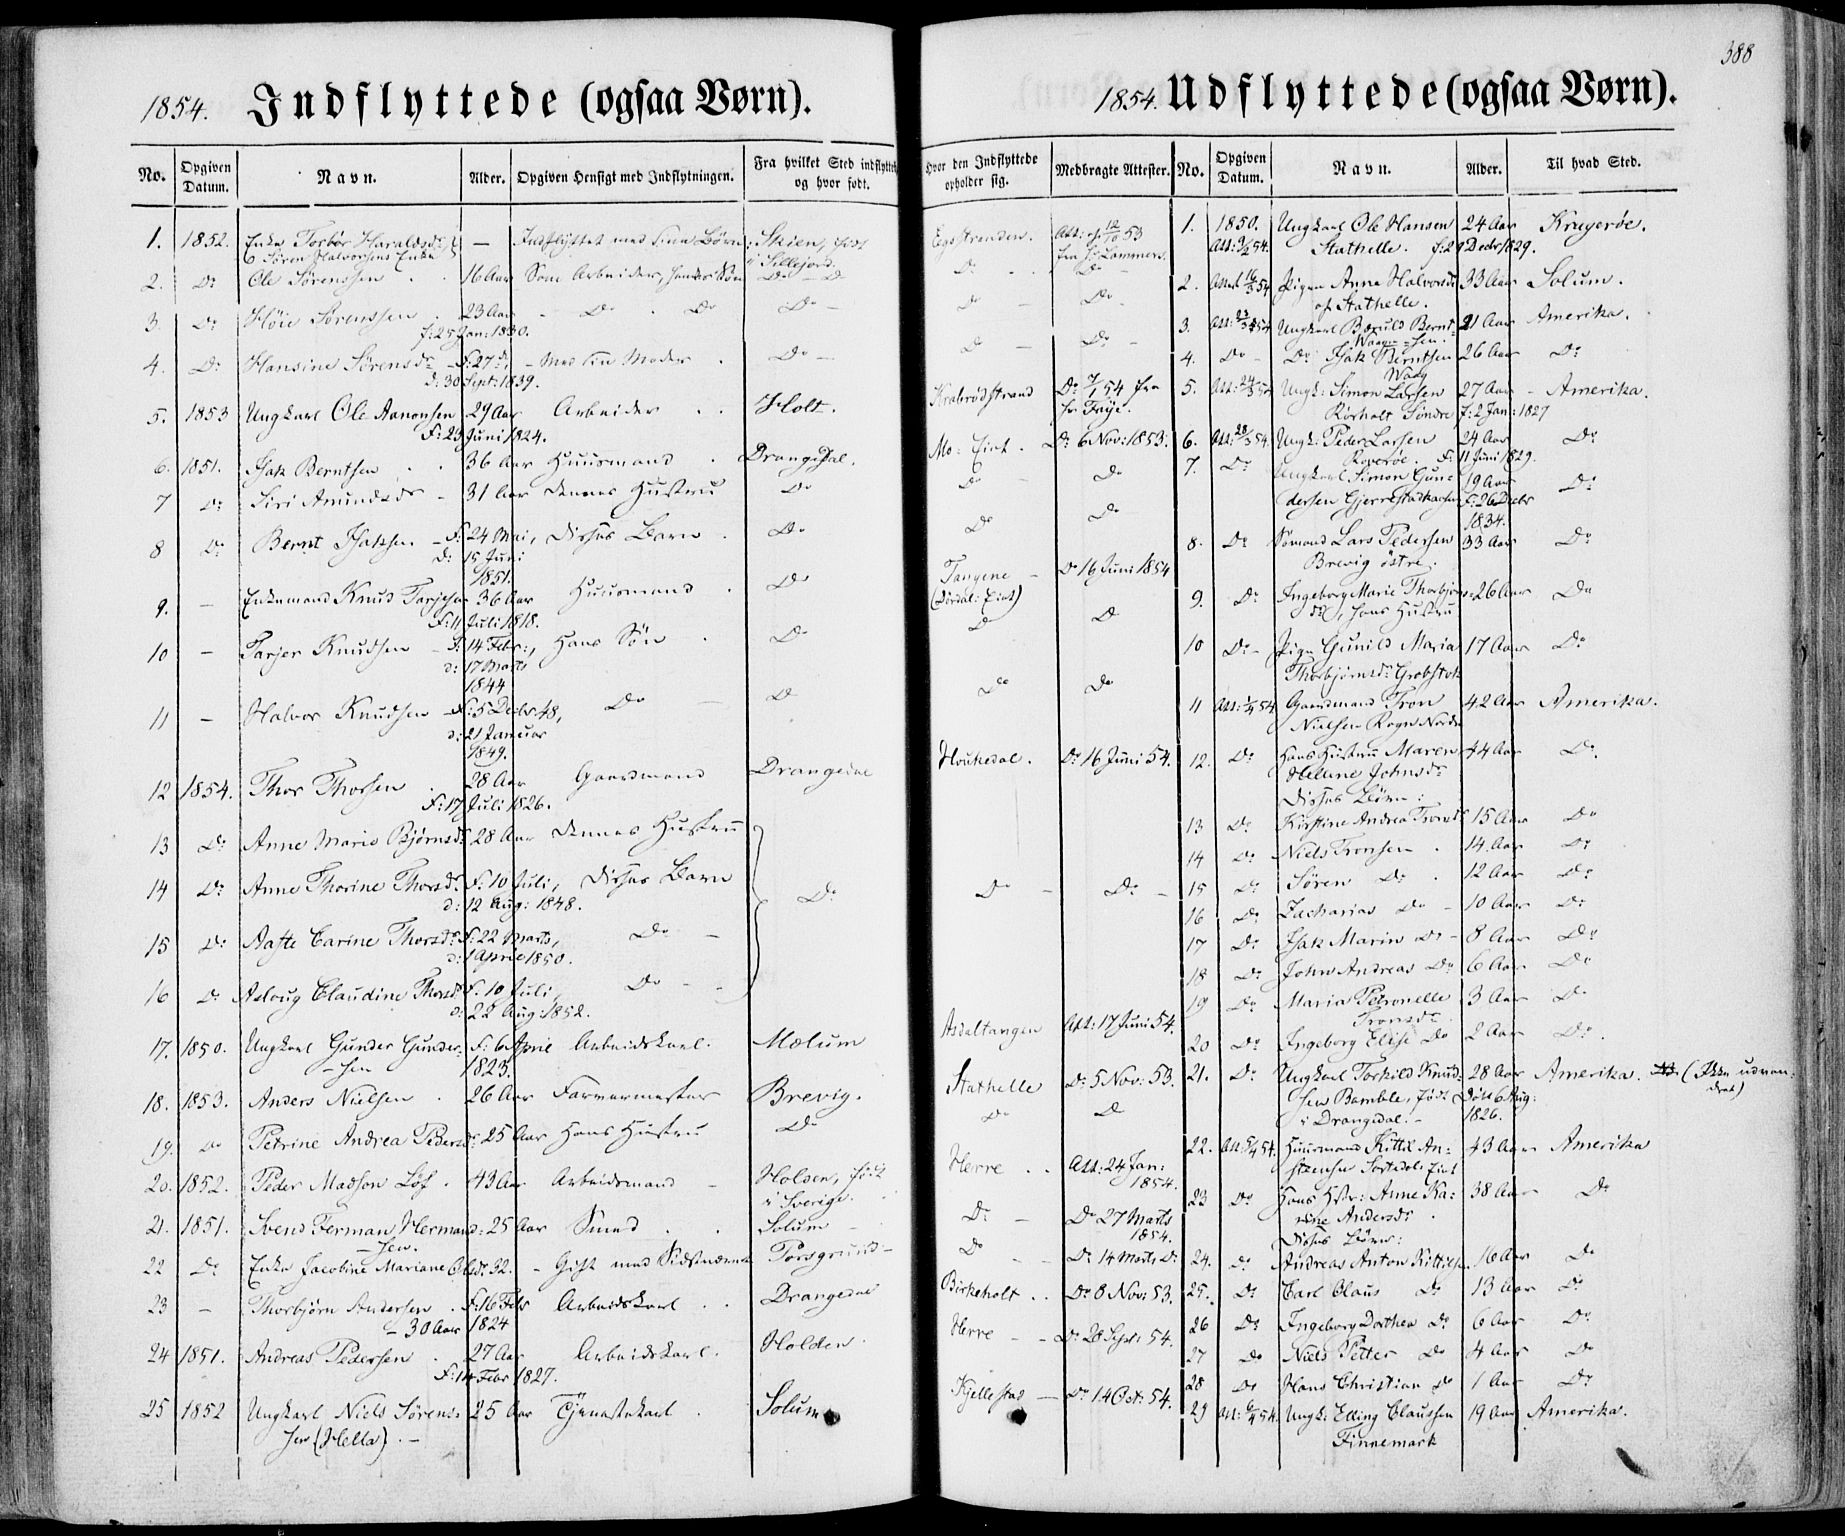 388
1854. Indflyttede (ogsaa Børn).
No. Opgiven Datum. Navn. Alder. Opgiven Hensigt med Indflytningen. Fra hvilket Sted indflyttet og hvor født. Hvor den Indflyttede opholder sig. Medbragte Attester.
1. 1852. Enke Torbør Haraldsdr — Indflyttet med sine Børn Skien, født Egsstranden. Att: af 12/10 53
Sören Halvorsens Enke i Sillejord. fra Hr Lammers.
2. Do Ole Sörenssen 16 Aar Som Arbeider, hendes Sön Do — D Do Do
3. Do Höie Sörenssen 23 Aar Do Do Do — Do Do
f: 25 Jan: 1830.
4. Do Hansine Sörensdr F: 27 d. — Med sin Moder Do — Do Do
d: 30 Sept: 1839.
5. 1853 Ungkarl Ole Aanonsen 29 Aar Arbeider Holt. Krabrödstrand Do 7/1 54 fra
F: 23 Juni 1824. hr. Fryе.
6. 1851. Isak Berntsen 36 Aar Huusmand Drangedal. Mo: Eiet. Do 6 Nov: 1853.
7 Do Siri Amundsdr 31 Aar dennes Hustru Do Do Do
8 Do Bernt Isaksen F: 24 Mai, Disses Barn Do Do Do
d: 15 Juni
1851.
9. — Enkemand Knud Tarjesen 36 Aar Huusmand Do Tangene Do 16 Juni 1854
F: 11 Juli 1818. (Dördal: Eiet)
10 — Tarjer Knudsen F: 14 Febr:, Hans Sön Do Do D
d: 17 Marts
1844
11 — Halvor Knudsen F: 5 Decbr 48, Do D Do Do
d: 21 Januar
1849.
12 1854. Thor Thorsen 28 Aar Gaardmand Drangedal Houkedal. Do 16 Juni 54.
F: 17 Juli 1826.
13 Do Anne Marie Björnsdr 28 Aar dennes Hustru
14 Do Anne Thorine Thorsdr F: 10 Juli, Disses Barn Do Do Do —
d: 12 Aug: 1848.
15 Do Aaste Carine Thorsdr F: 22 Marts, Do —
d: 1 April 1850.
16 Do Aslaug Claudine Thorsdr F. 10 Juli, Do —
d: 22 Aug: 1852.
17. 1850. Ungkarl Gunder Gunder- F: 6 April Arbeidskarl. Mælum Aasaltangen Att: 17 Juni 54.
-sen 1823.
18. 1853. Anders Nielsen 26 Aar Farvermester Brevig. Stathelle Do 5 Nov: 53.
19. Do Petrine Andrea Pedersdr 25 Aar Hans Hustru Do Do D
20. 1852. Peder Madson Löf 43 Aar Arbeidsmand — Holsen, født Herre Att: 24 Jan:
i Sverige. 1854.
21. 1851. Svend Ferman Herman- 25 Aar Smed Solum Do — Do 27 Marts
-sen. 1854.
22 Do Enke Jacobine Mariane Olsdr 32. — Gift med Sidstnævnte Porsgrund Do Do 14 Marts Do
23 — Thorbjörn Andersen F: 16 Feb Arbeidskarl Drangedal Birkeholt Do 8 Nov: 53.
— 30 Aar 1824
24 1851. Andreas Pedersen 27 Aar Arbeidskarl. Holden. Herre — Do 28 Sept: 54.
F: 14 Febr 1827.
25 1852 Ungkarl Niels Sörens- 25 Aar Tjenestekarl Solum Kjellestad — Do 14 Oct: 54.
sen (Hella). —
1854. Udflyttede (ogsaa Børn).
No. Opgiven Datum. Navn. Alder. Til hvad Sted.
1. 1850. Ungkarl Ole Hansen 24 Aar Kragerøe.
Att: 9/2 54. Stathelle. f: 29 Decbr 1829.
2. Attest 16/3 54 Pigen Anne Halvorsdr 33 Aar Solum.
af Stathelle.
3. Att: 23/3 54 Ungkarl Baruld Bernt- 21 Aar Amerika.
Waag- -sen.
4. Do — Do Isak Berntsen 26 Aar Do
Waag
5. Att: 24/3 54 Ungk: Simon Larsen 27 Aar — Amerika.
Rörholt Söndre f: 2 Jan: 1827
6. Att: 28/3 54. Ungk: Peder Larsen 24 Aar Do
Kaverøe. F: 11 Juni 1829.
7. Do Ungkarl Simon Gun- 19 Aar Do
dersen Gjerrestadkasen F: 26 Decbr
1834.
8. Do Sömand Lars Pedersen 33 Aar Do
Brevig östre.
9. Do Ingeborg Marie Thorbjörns- 26 Aar Do
dr, hans Hustru
10 Do — Pige Gunild Maria 17 Aar Do
Thorbjörnsdr Grobstok
11 Att: 1/4 54 Gaardmand Tron 42 Aar Amerika.
Nielsen Rogn Nordre
12. Do Hans Hustru Maren 44 Aar Do.
Helene Johnsdr
Disses Börn:
13 Do Kirstine Andrea Tronsdr 15 Aar Do
14 Do Niels Tronsen 14 Aar Do
15 Do Sören Do 12 Aar Do
16 Do Zacharias Do — 10 Aar Do
17 Do Isak Marin Do — 8 Aar Do
18 Do John Andreas Do 6 Aar Do
19 Do Maria Petronelle 3 Aar Do
Tronsdr
20 Do Ingeborg Elise Do 2 Aar Do.
21. Do Ungkarl Torkild Knud- 28 Aar Amerika. (Ikke udvan-
sen Bamble, født Döbt 6 Aug: dret)
i Drangedal. — 1826.
22. Att 5/4 54. Huusmand Kittil An- 43 Aar Amerika
stensen Sortedals Eiet
23 Do Hans Hstr: Anne Ka- 38 Aar Do
rine Andersdr
Disses Börn:
24. Do Andreas Anton Kittils. 16 Aar Do
25. Do Carl Claus Do 13 Aar Do
26 Do Ingeborg Dorthea Do 6 Aar Do
27 Do Niels Petter Do 4 Aar Do
28 Do Hans Christian Do 1 Aar Do
29 Att: 6/4 54. Ungk: Elling Claussen 19 Aar Amerika.
Finnemark